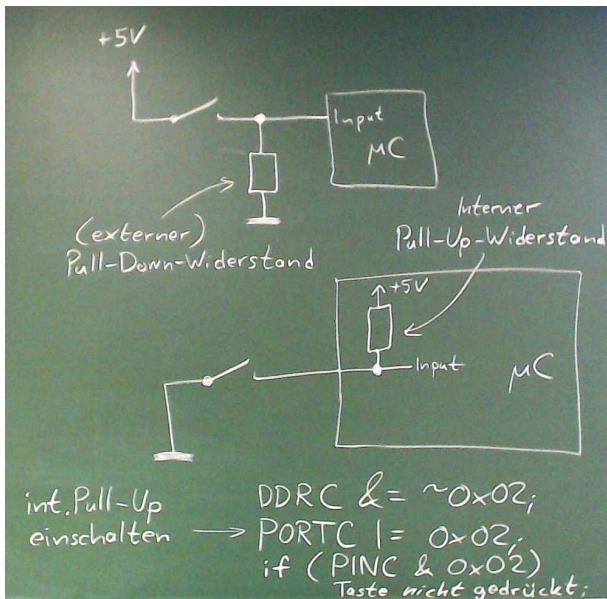 +5V
Input
µC
(externer)
Pull-Down-Widerstand
Interner
Pull-Up-Widerstand
+5V
Input
µC
int. Pull-Up
einschalten
DDRC &= ~0x02;
PORTC |= 0x02;
if (PINC & 0x02)
Taste nicht gedrückt;